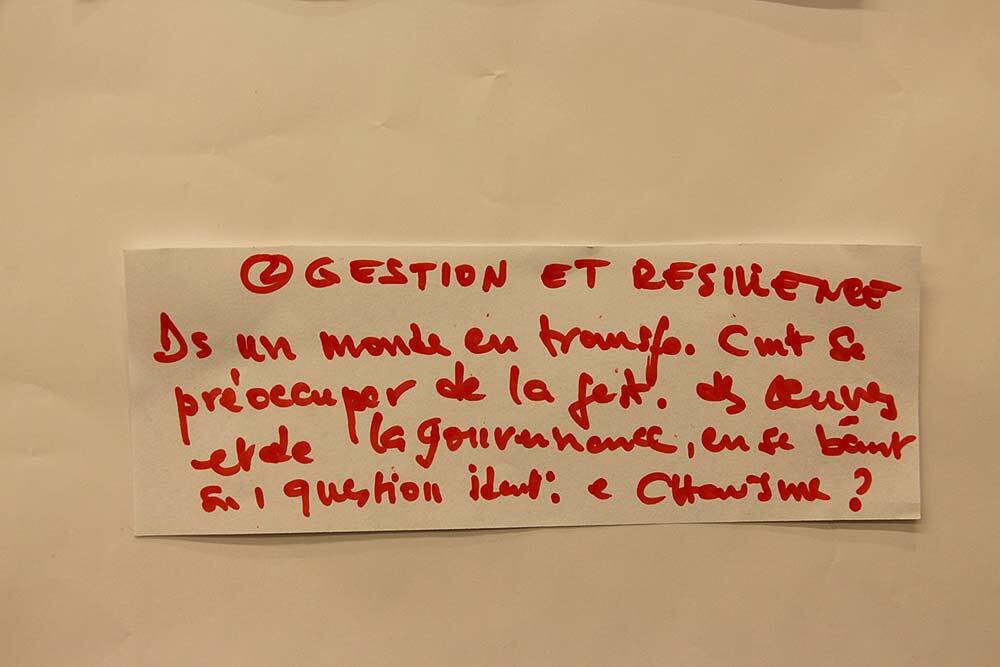 ② GESTION ET RESILIENCE
Ds un monde en transfo. Cmt se
préoccuper de la gest. des œuvres
et de la gouvernance, en se basant
sur 1 question identi: e CHarisme ?